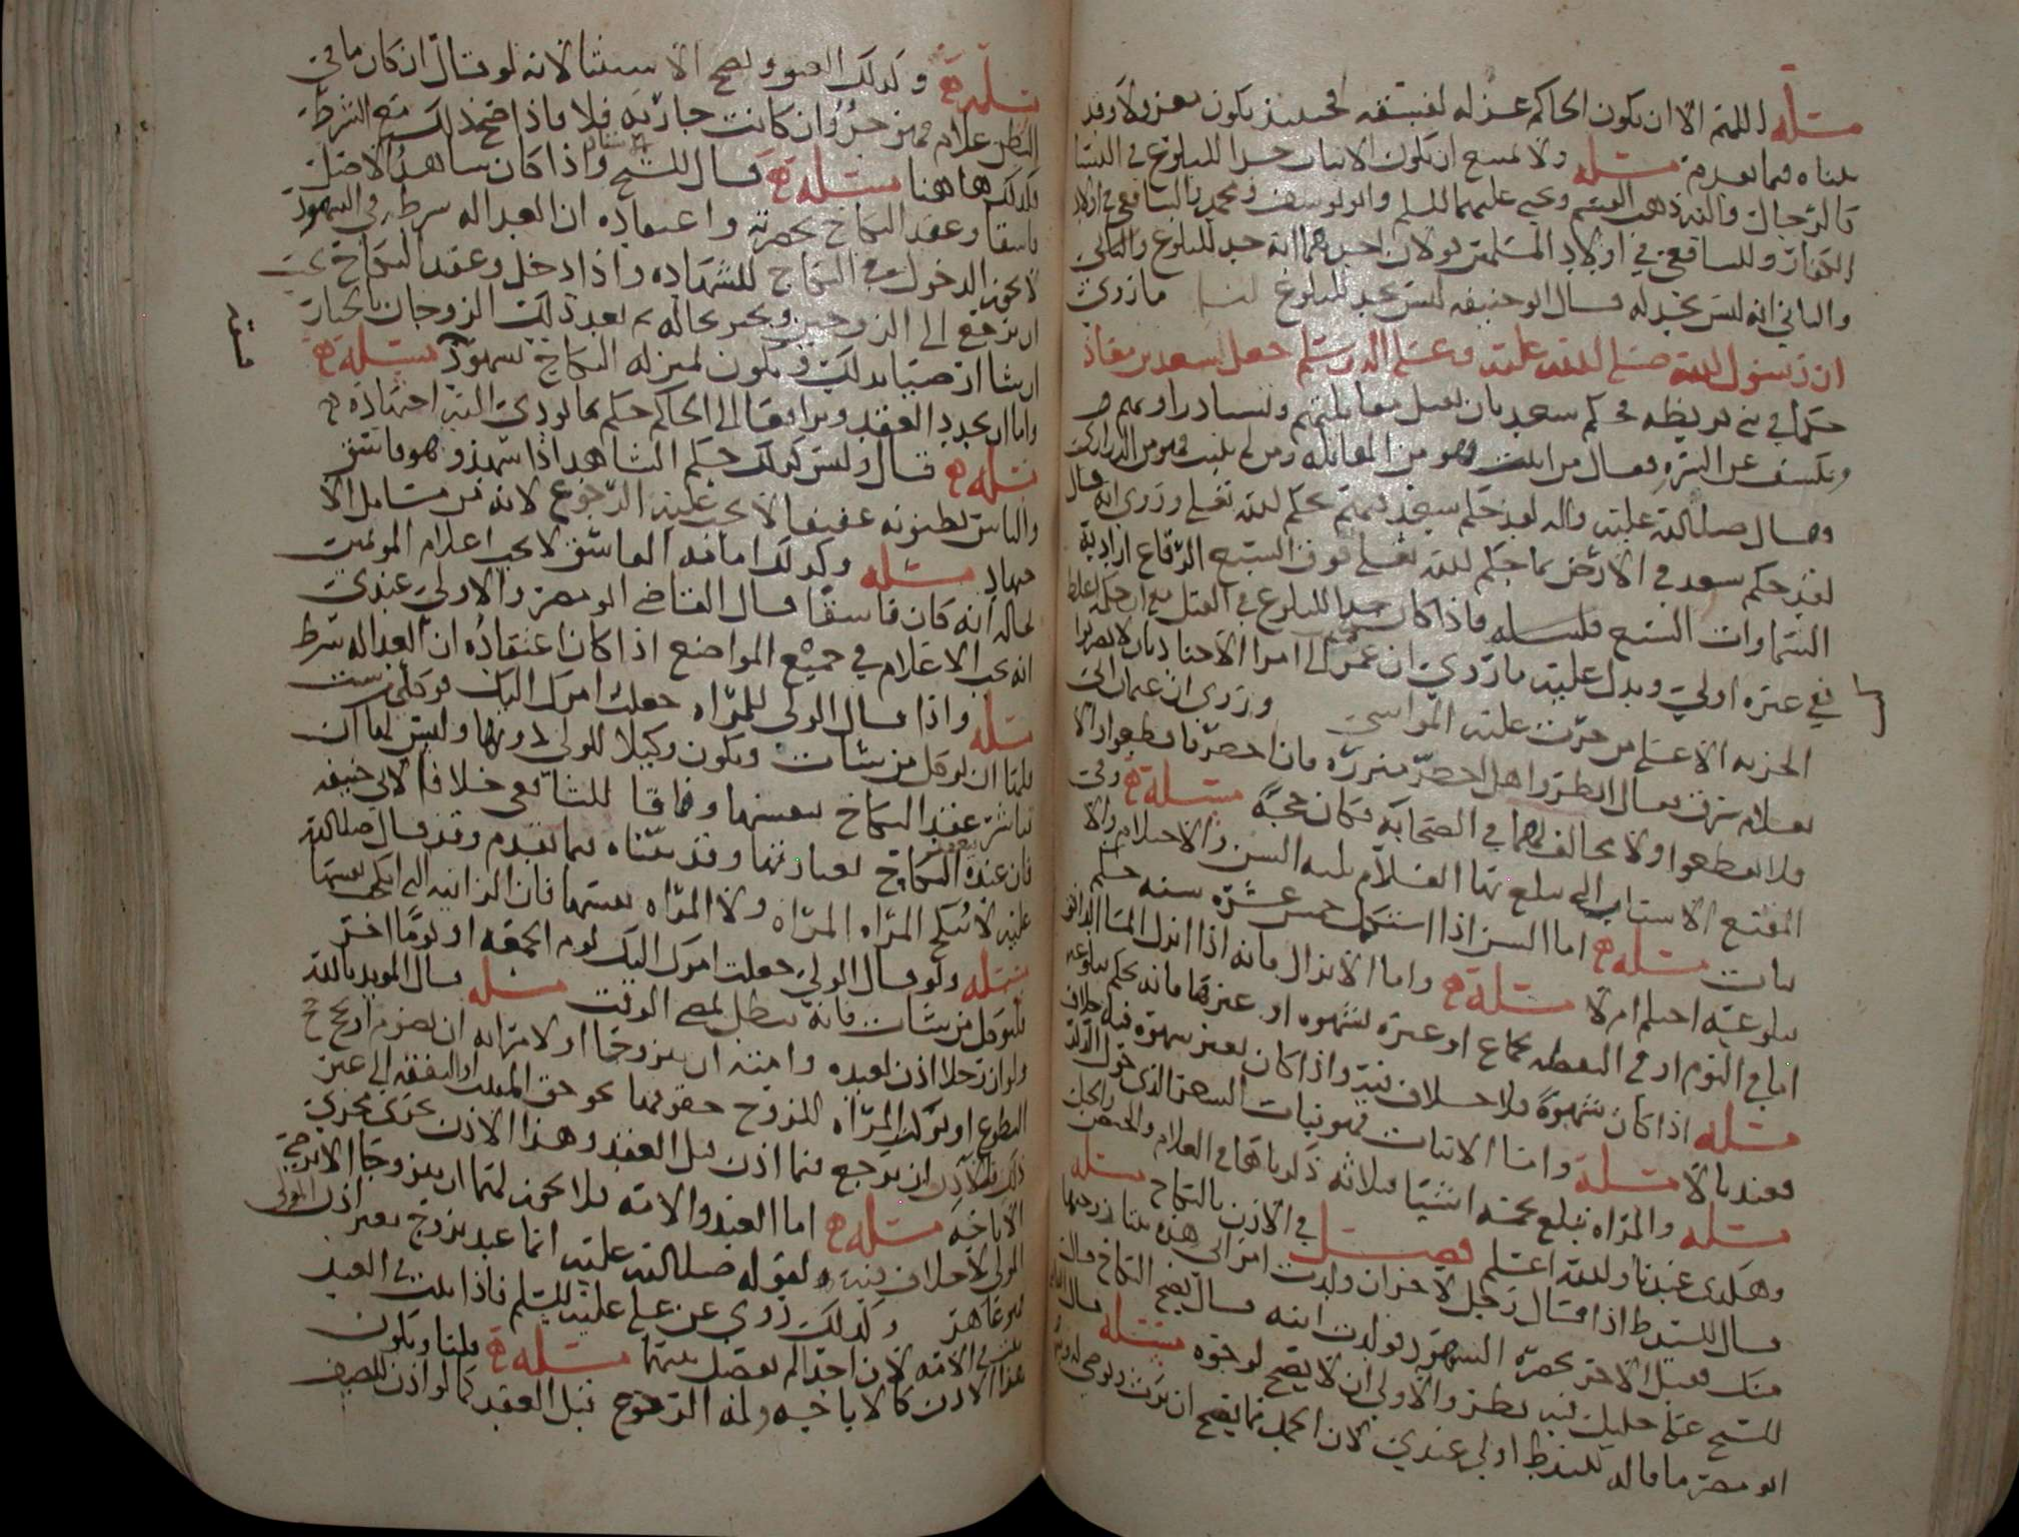 مسئلة اللهم الا ان يكون الحاكم عزله لفسقه فحينئذ يكون معزولا وقد
بيناه فيما تقدم مسئلة ولا يمتنع ان يكون الانبات حدا للبلوغ في النسا
والرجال واليه ذهب القسم ويحيى عليهما السلم وابو يوسف ومحمد والشافعي في اولاد
الكفار وللشافعي في اولاد المسلمين قولان احدهما انه حد للبلوغ والثاني
والثاني انه ليس بحد له قال ابو حنيفه ليس بحد للبلوغ لنا ما روي
ان رسول الله صلى الله عليه وعلى اله وسلم جعل سعد بن معاذ
حكما في بني قريظه فحكم سعد بان يقتل مقاتلتهم وتسبا ذراريهم
ويكشف عن المؤتزر فقال من انبت فهو من المقاتله ومن لم ينبت فهو من الذراري
وقال صلى الله عليه واله لقد حكم سعد فيهم بحكم الله تعالى وروي انه قال
لقد حكم سعد في الارض بما حكم الله تعالى فوق السبع الرقاع اراد به
السماوات السبع فاذا كان حدا للبلوغ في القتل مع ان حكمه اغلظ
ففي غيره اولى ويدل عليه ما روي ان عمر كتب الى امرا الاجناد بان لا يضربوا
الجزيه الا على من جرت عليه المواسي وروي ان عثمان اتي
بغلام سرق فقال انظروا هل اخضر مئزره فان اخضر فاقطعوا والا
فلا تقطعوا ولا مخالف لهما في الصحابه فكان حجة مسئلة وفي
المقنع الاسباب التي يبلغ بها الغلام ثلثه السن والاحتلام والا
نبات مسئلة اما السن اذا استكمل خمس عشرة سنه حكم
ببلوغه احتلم ام لا مسئلة واما الانزال فانه اذا انزل الما الدافق
اما في النوم او في اليقظه بجماع او غيره لشهوه او غيرها فانه يحكم ببلوغه
مسئلة اذا كان بشهوة فلا خلاف فيه واذا كان بغير شهوه فيه خلاف
فعندنا لا مسئلة واما الانبات فهو نبات الشعر الذي حول الذكر
مسئلة والمراه تبلغ بخمسه اشيا ثلاثه ذكرناها في الغلام والحيض والحبل
وهكذى عندنا والله اعلم فصل في الاذن بالنكاح مسئلة
قال السيد ط اذا قال رجل لاخر ان ولدت امراتي هذه بنتا زوجتها
منك فقبل الاخر بحضرة الشهود فولدت ابنه قال يصح النكاح قال
الشيخ علي خليل فيه نظر والاولى ان لا يصح لوجوه مسئلة قال
ابو مضر ما قاله السيد ط اولى عندي لان الحمل مما يصح ان يرث ويوصى له
مسئلة وكذلك العتق ويصح الاستثنا لانه لو قال ان كان ما في
البطن غلام فهو حر وان كانت جارية فلا فاذا صح ذلك مع الشرط
فكذلك هاهنا مسئلة قال الشيخ واذا كان شاهد الاصل
فاسقا وعقد النكاح بحضرته واعتقاده ان العداله شرط في الشهود
لا يجوز الدخول في النكاح للشهاده واذا دخل وعقد النكاح يجب
ان يرجع الى الزوجين ويخبر بحاله ثم بعد ذلك الزوجان بالخيار
ان شاا رضيا بذلك ويكون بمنزله النكاح بشهود مسئلة
واما ان يجددا العقد ويترافعا الى الحاكم حكم بما يودي اليه اجتهاده
مسئلة قال وليس كذلك حكم الشاهد اذا شهد وهو فاسق
والناس يظنونه عفيفا لا يجب عليه الرجوع لانه من مسائل الا
جتهاد مسئلة وكذلك امامة الفاسق لا يجب اعلام المؤتمين
بحاله انه كان فاسقا قال القاضي ابو مضر والاولى عندي
انه يجب الاعلام في جميع المواضع اذا كان اعتقاده ان العداله شرط
مسئلة واذا قال الولي للمراه جعلت امرك اليك فوكلي من شئت
فلها ان توكل من شات ويكون وكيلا للولي دونها وليس لها ان
تباشر عقد النكاح بنفسها وفاقا للشافعي خلافا لابي حنيفه
فان عنده النكاح بعبارتها وقد بيناه بما تقدم وقد قال صلى الله
عليه لا تنكح المراه المراه ولا المراه نفسها فان الزانيه التي تنكح نفسها
مسئلة ولو قال الولي جعلت امرك اليك يوم الجمعه او يوما اخر
فلتوكل من شات فانه يبطل بمضي الوقت مسئلة قال المويد بالله
ولو ان رجلا اذن لعبده وامته ان يتزوجا او لامراته ان تصوم او تحج حج
التطوع او تركت المراه للزوج حقوقها نحو حق المبيت او النفقه الى غير
ذلك فللآذن ان يرجع فيما اذن قبل العقد وهذا الاذن يجري مجرى
الاباحة مسئلة اما العبد والامه فلا يجوز لهما ان يتزوجا الا برضى
المولى لا خلاف فيه ولقوله صلى الله عليه ايما عبد تزوج بغير اذن المولى
فهو عاهر وكذلك روي عن علي عليه السلم فاذا ثبت في العبد
ثبت في الامه لان احدا لم يفصل بينهما مسئلة قلنا ويكون
هذا الاذن كالاباحه وله الرجوع قبل العقد كما لو اذن للضيف